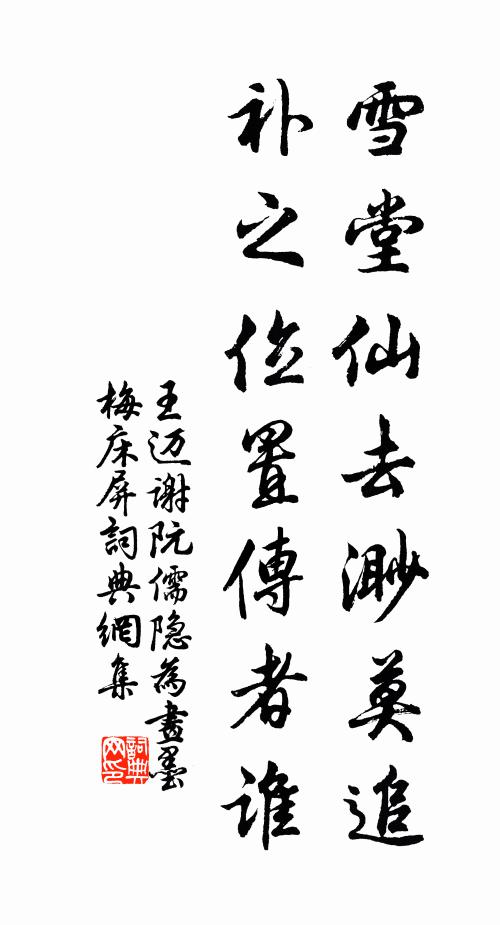 雪堂仙去渺莫追
补之位置傳者誰
王迈谢阮儒隐為畫墨
梅床屏詞典網集
詞典
网印